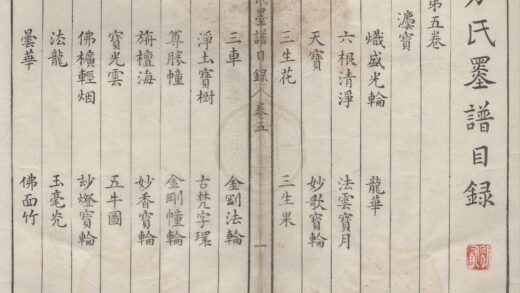 方氏墨譜目録
第五卷
灋寶
熾盛光輪 龍華
六根清淨 法雲寶月
天寶 妙歌寶輪
三生花 三生果
氏墨譜目録 卷五 一
三車 金剛法輪
淨土寶樹 古梵字環
尊勝幢 金剛幢輪
旃檀海 妙香寶輪
寶光雲 五牛圖
佛櫎輕烟 玅燈寶輪
法龍 玉毫光
曇華 佛面竹